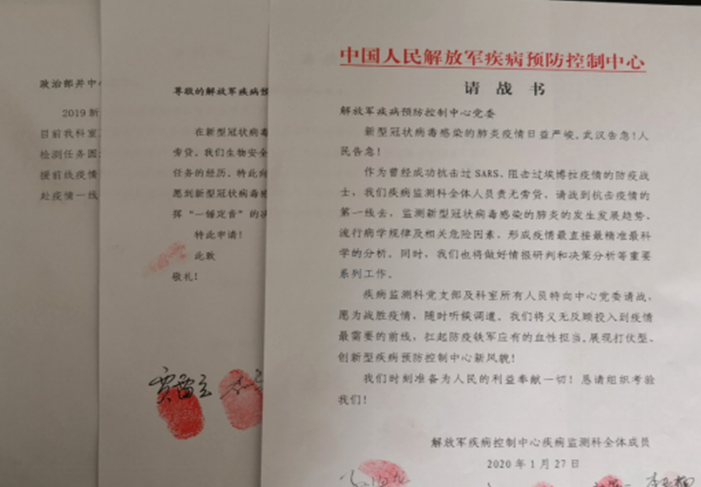 政治部并中心
2019新
目前我科室
检测任务
援前线疫情
赴疫情一线
尊敬的解放军疾病预
在新型冠状病毒
旁贷。我们生物安全
任务的经历，特此向
愿到新型冠状病毒感
挥“一锤定音”的
特此申请！
此致
敬礼！
中国人民解放军疾病预防控制中心
请战书
解放军疾病预防控制中心党委
新型冠状病毒感染的肺炎疫情日益严峻，武汉告急！人
民告急！
作为曾经成功抗击过SARS、阻击过埃博拉疫情的防疫战
士，我们疾病监测科全体人员责无旁贷，请战到抗击疫情的
第一线去，监测新型冠状病毒感染的肺炎的发生发展趋势、
流行病学规律及相关危险因素，形成疫情最直接最精准最科
学的分析。同时，我们也将做好情报研判和决策分析等重要
系列工作。
疾病监测科党支部及科室所有人员特向中心党委请战，
愿为战胜疫情，随时听候调遣。我们将义无反顾投入到疫情
最需要的前线，扛起防疫铁军应有的血性担当，展现打仗型、
创新型疾病预防控制中心新风貌！
我们时刻准备为人民的利益奉献一切！恳请组织考验
我们！
解放军疾病控制中心疾病监测科全体成员
2020年1月27日